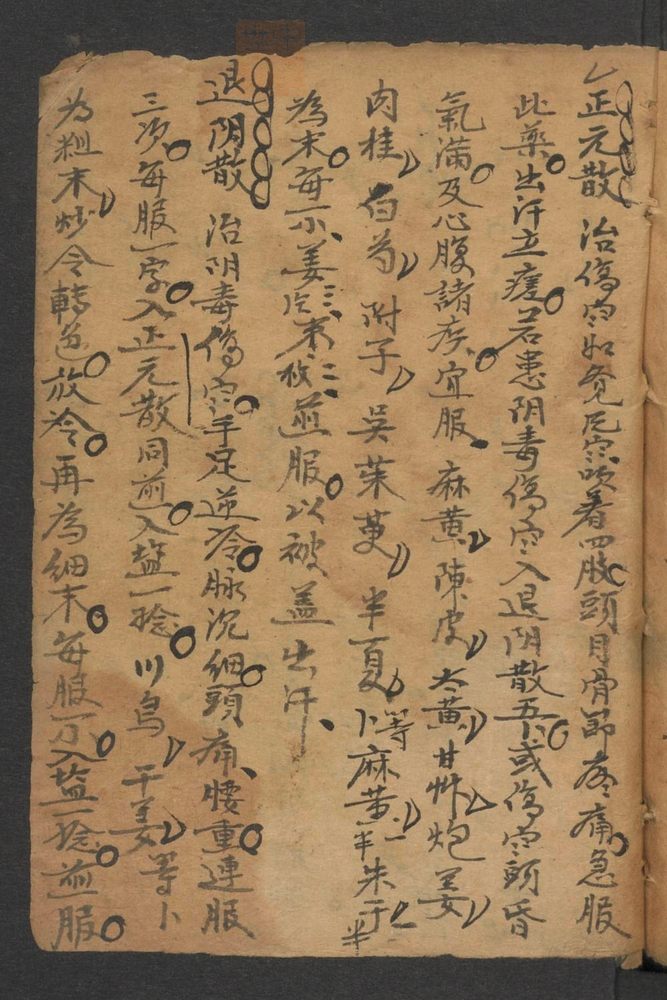 正元散 治傷寒如覺風寒吹着四肢頭目骨節疼痛急服
此藥出汗立瘥若患阴毒傷寒入退阴散五卜或傷寒頭昏
氣滿及心腹諸疾宜服 麻黄 陳皮 大黄 甘艸 炮姜
肉桂 白芍 附子 吳茱萸 半夏 卜等 麻黄 一半 朱于 一半
為末每一 姜 三 枣 二 煎服以被盖出汗
退阴散 治阴毒傷寒手足逆冷脉沉細頭痛腰重連服
三次每服一字入正元散同煎入盐一捻 川烏 干姜 等卜
为粗末炒令轉色放冷再為細末每服一 入盐一捻煎服